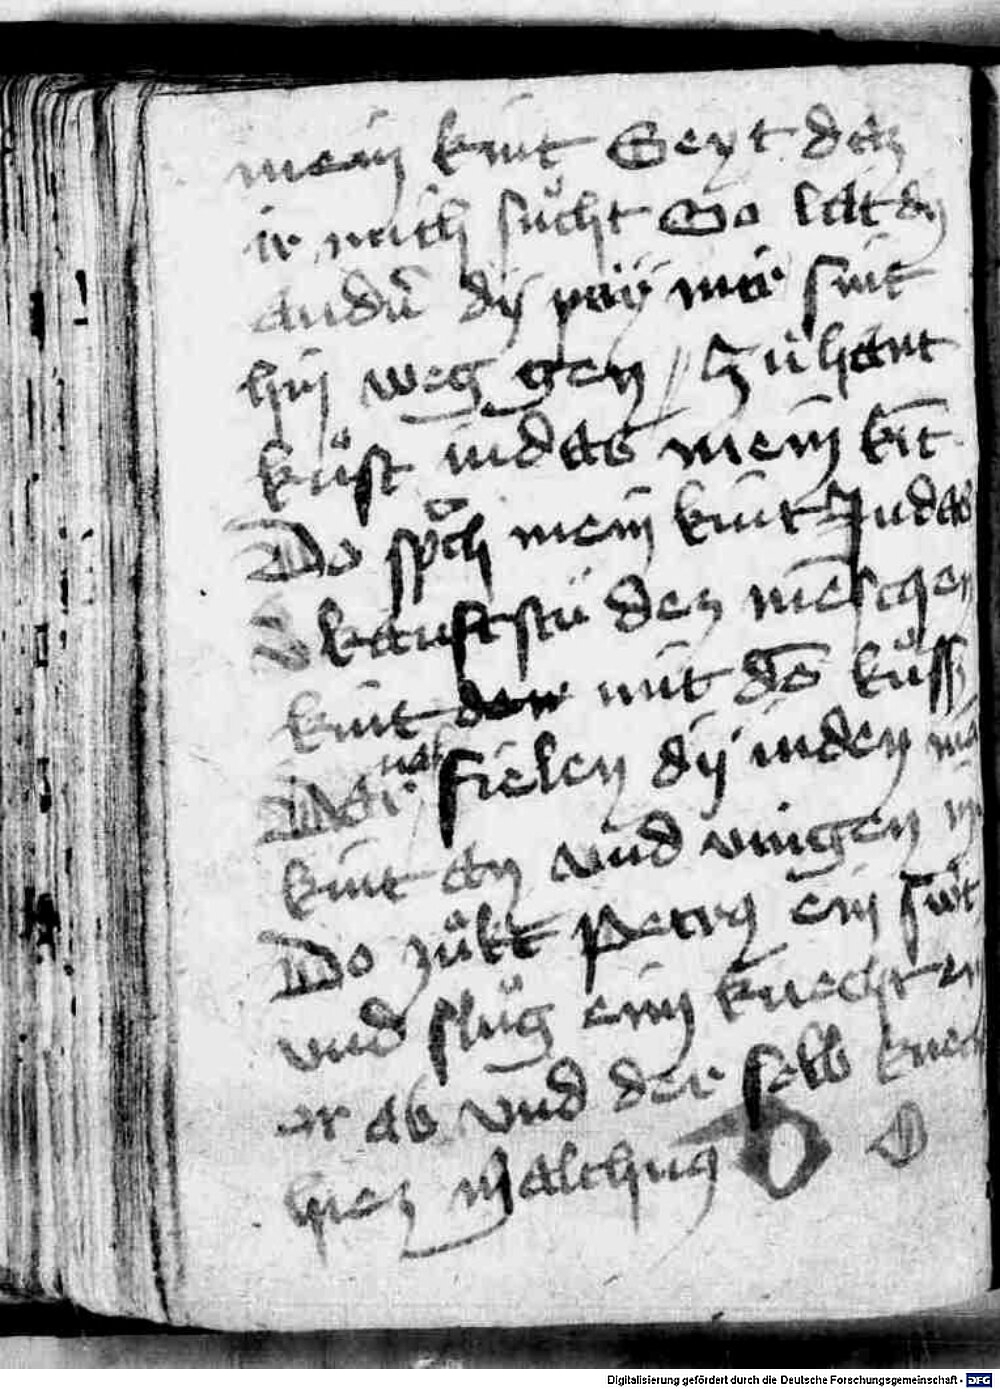 mein kint Seyt dez
ir mich sücht So lat dy
andñ dy peÿ mir sint
hin weg gen / Zühant
küst iudas mein kīt
Do spͦch mein kint Judas
kaufstü dez mēschen
kint mit dē küss
Dar nach fielen dÿ iuden
kint an vnd vingen
Do zükt Petrus ein swͦt
vnd slüg eim knecht ein
or ab vnd der selb knech
hiez Malchus O O
Digitalisierung gefördert durch die Deutsche Forschungsgemeinschaft - DFG